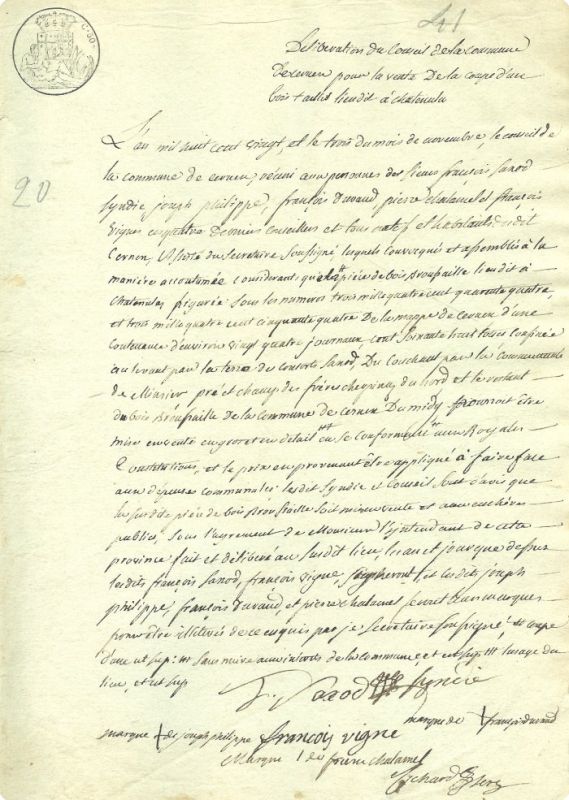 41
C. 50
Déliberation du Conseil de la commune
de cernex pour la vente De la coupe d'un
bois taillis lieudit à chatenula
20
L'an mil huit cent vingt, et le trois du mois de novembre, le conseil de
la commune de cernex, réuni aux personnes des sieurs françois Sanod
syndic joseph philippe, françois duvaud, pierre chalamel et françois
vigne les quatre Derniers conseillers et tous natifs et habitants dudit
Cernex, assistés du secretaire soussigné lesquels convoqués et assemblés à la
manière accoutumée considerants que la pièce de bois Broussaille lieudit à
chatenula figurée sous les numeros trois mille quatre cent quarante quatre,
et trois mille quatre cent cinquante quatre De la mappe de cernex d'une
contenance d'environ vingt quatre journaux, cent soixante huit toises confinée
au levant par la terre de Sanod, Du couchant par les Communaux
de Minsier pré et champ des frères du Nord et le restant
du bois Broussaille de la commune de cernex Du midy pourroit être
mise en vente en gros et en détail en se conformant aux Royales
Constitutions, et le prix en provenant être appliqué à faire face
aux dépenses communales lesdit syndic et conseil sont d'avis que
la susdite pièce de bois Broussaille soit mise en vente et aux enchères
publics, sous l'agrement de Monsieur l'jntendant de cette
province fait et délibéré au susdit lieu les an et jour que dessus
lesdits françois Sanod, françois vigne, et lesdits joseph
philippe, françois duvaud, et pierre chalamel se sont leurs marques
pour être illétérés de ce enquis par je secretaire soussigné, coupe
sans nuire aux interets de la commune et l'usage du
lieu, et ut sup
f. Sanod Syndic
marque + de joseph philippe françois vigne marque de + françois duvaud
Marque 1 de pierre chalamel